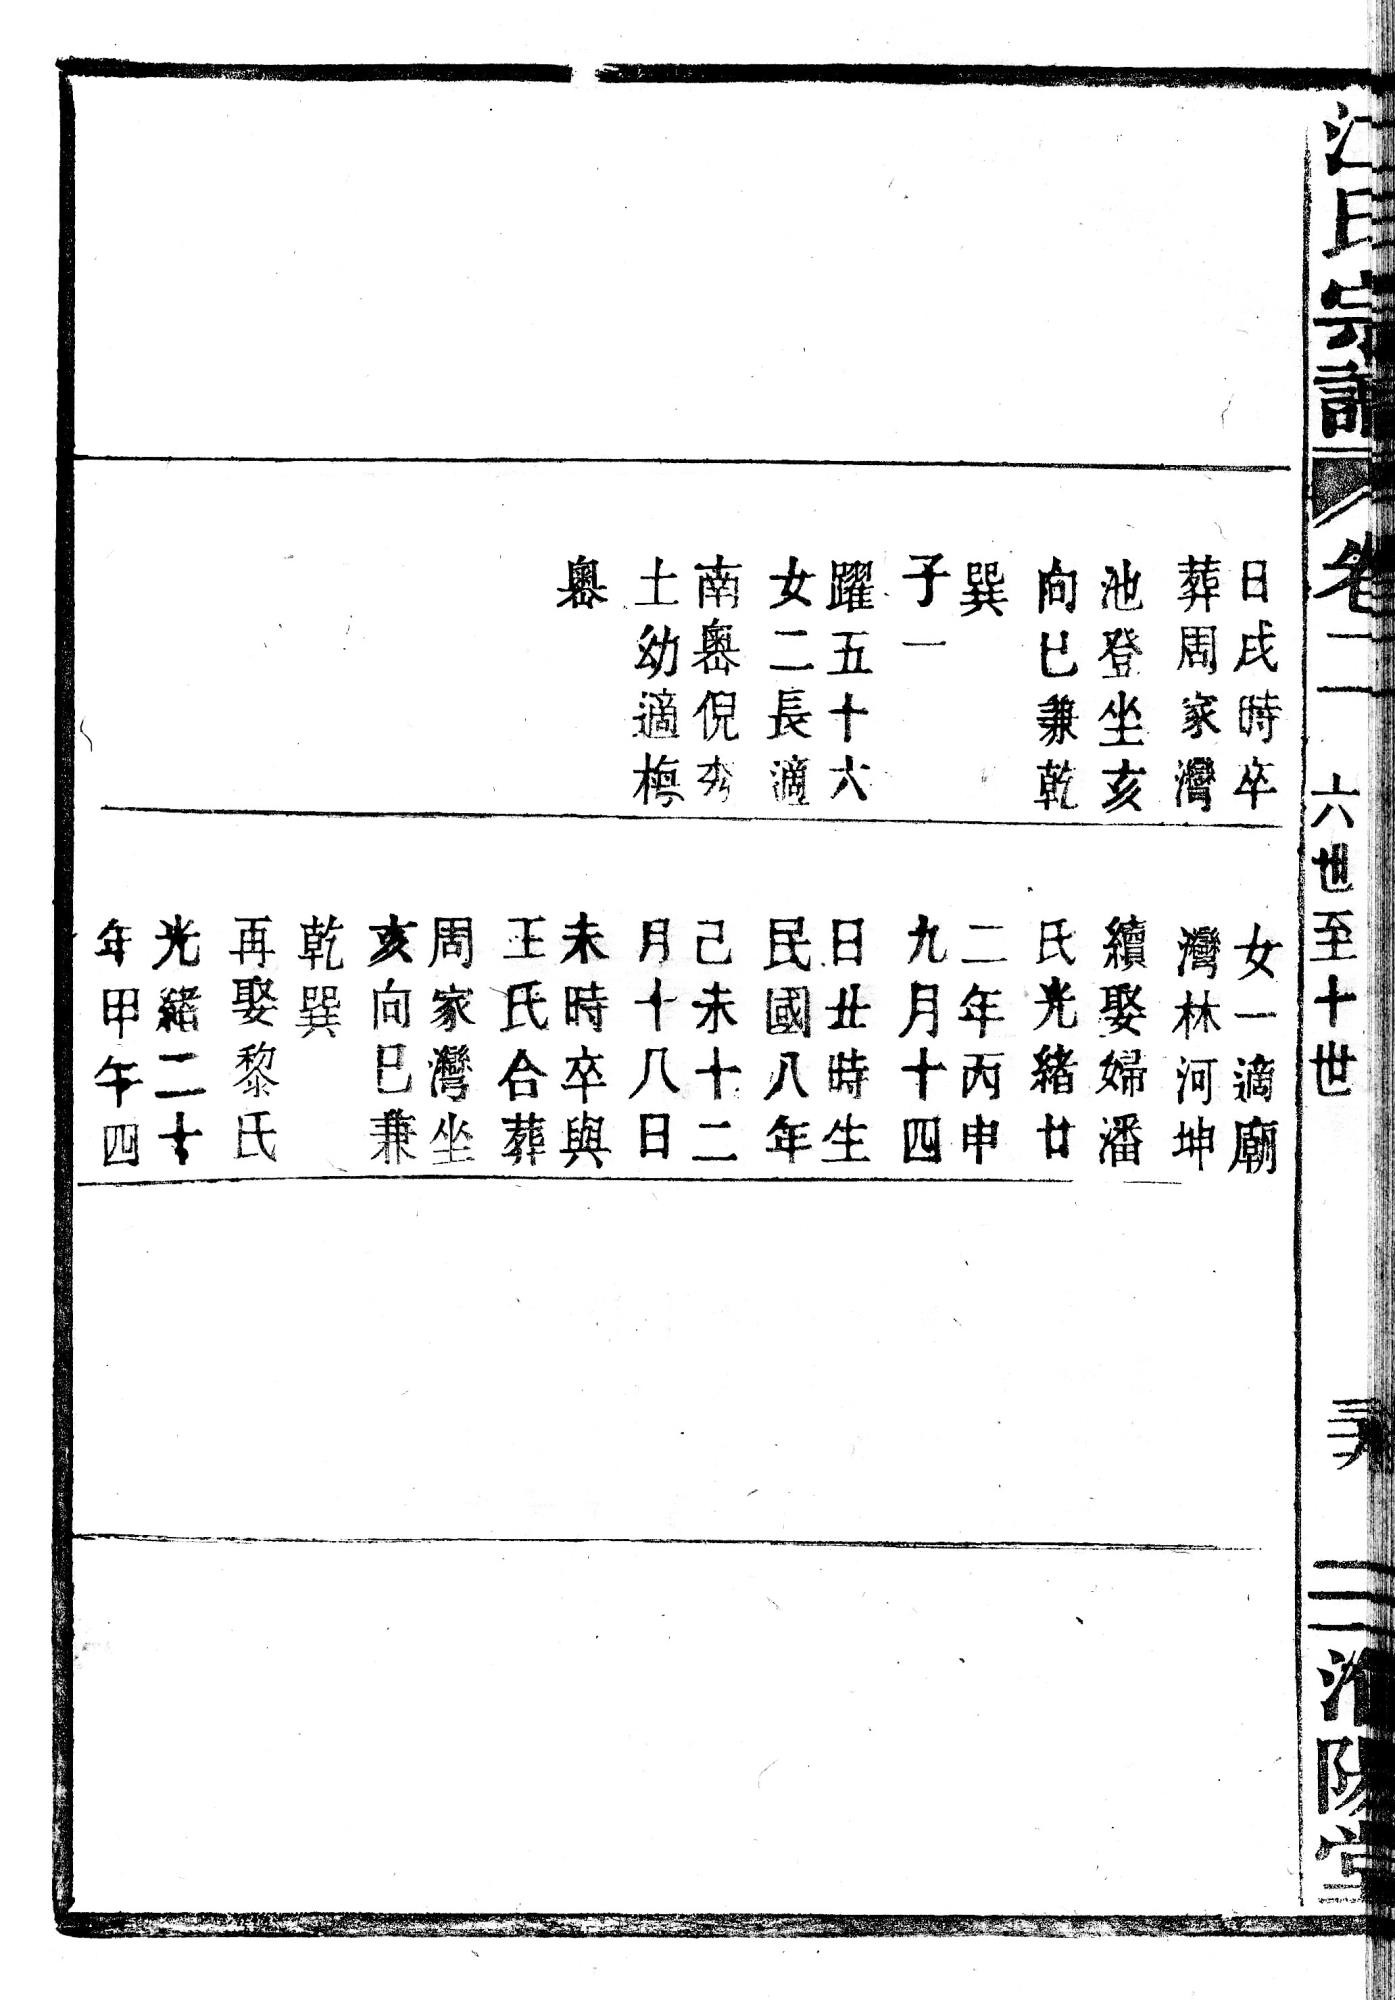 江氏宗譜
卷二
六世至十世
淮陽堂
日戌時卒
葬周家灣
池登坐亥
向巳兼乾
巽
子一
躍五十六
女二長適
南嶴倪秀
土幼適梅
嶴
女一適廟
灣林河坤
續娶婦潘
氏光緒廿
二年丙申
九月十四
日丑時生
民國八年
己未十二
月十八日
未時卒與
王氏合葬
周家灣坐
亥向巳兼
乾巽
再娶黎氏
光緒二十
年甲午四